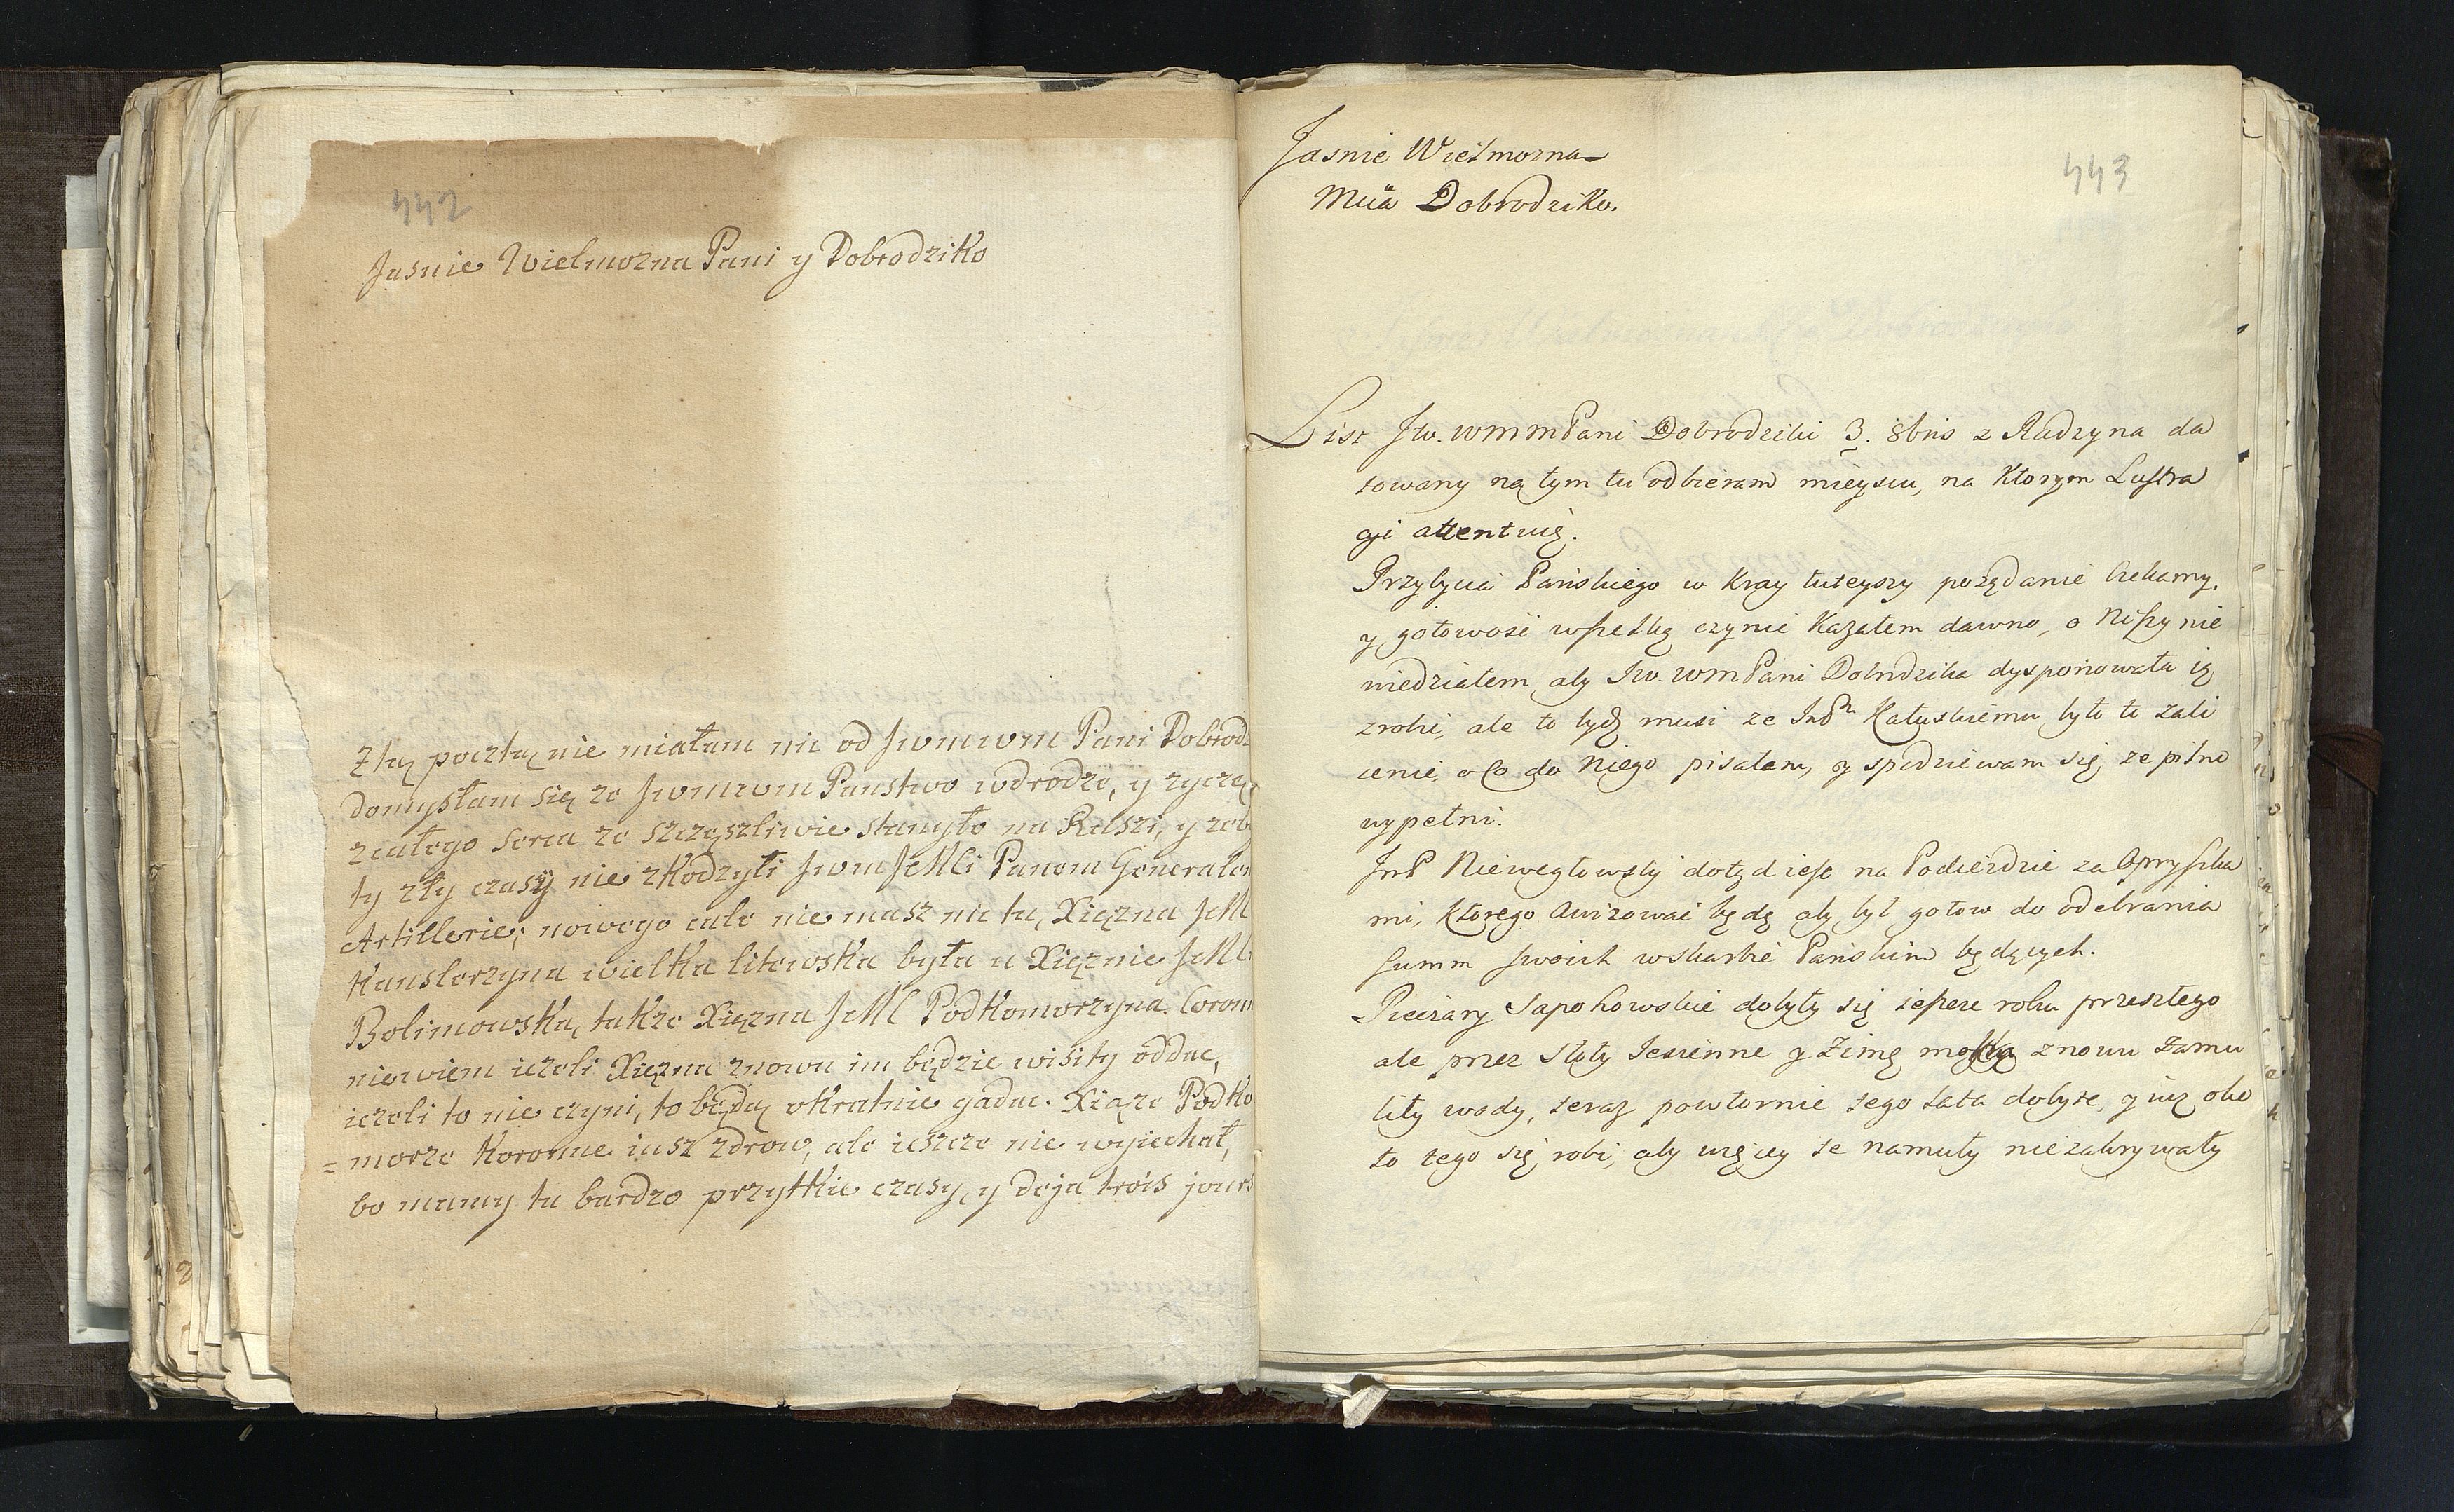 442
Jasnie Wielmozna Pani y Dobrodziko
Ztą pocztą nie miałam nic od Jwmwm Pani Dobrod
domysłam się ze Jwmwm Panstwo wdrodze, y zyczę
zcałego serca ze szczęszliwie stanyło na Ruszi, y zeb
ty zły czasÿ nie zkodzyli Jwm JeMCi Panom Generałom
Artillerie; nowego cale nie masz nic tu, Xięzna JeM
Kanslerzyna wielka litewska była u Xięznie JeMC
Bolimowską, takze Xięzna JeMC Podkomorzyna Coron
niewiem iezeli Xięzna znowu im będzie wisity oddac,
iezeli to nie czyni, to będą okratnie gadac. Xiąze Podko
= morze Koronne iusz zdrow, ale ieszcze nie wyiechał,
bo mamy tu bardzo przytkie czasy, y deja trois jours
443
Jasnie Wielmozna
Mcia Dobrodziko.
List Jw. WMM Pani Dobrodziki 3. 8bris z Radzyna da
towany na tym tu odbieram mieyscu, na ktorym Lustra
cyi attentuię.
Przybycia Pańskiego w Kray tuteyszy pożądanie czekamy,
y gotowość wszelką czynic Kazałem dawno, o Niszy nie
wiedziałem, aby Jw. WM Pani Dobrodzika dysponowała ią
zrobic, ale to bydz musi ze Kałuskiemu było to zale
cenie, o co do Niego pisałem, y spodziewam się, ze pilno
wypełni.
JmP Niewęgłowsky dotąd iest na Podieździe za Opryszka
mi, Ktorego awizować będę aby był gotow do odebrania
summ swoich wskarbie Pańskim będących.
Pieczary Sapohowskie dobyły się ieszcze roku przeszłego
ale przez Słoty Jesienne y Zimę znowu zamu
liły wody, teraz powtornie tego Lata dobyte, y iuz oko
to tego się robi, aby więcey te namuły niezakrywały